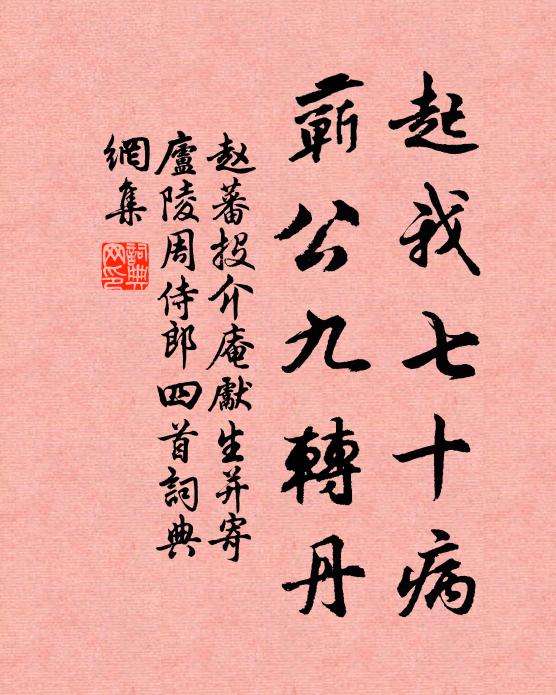 起我七十病
蘄公九轉丹
赵蕃投介庵獻生并寄
廬陵周侍郎四首詞典
網集
詞典網印